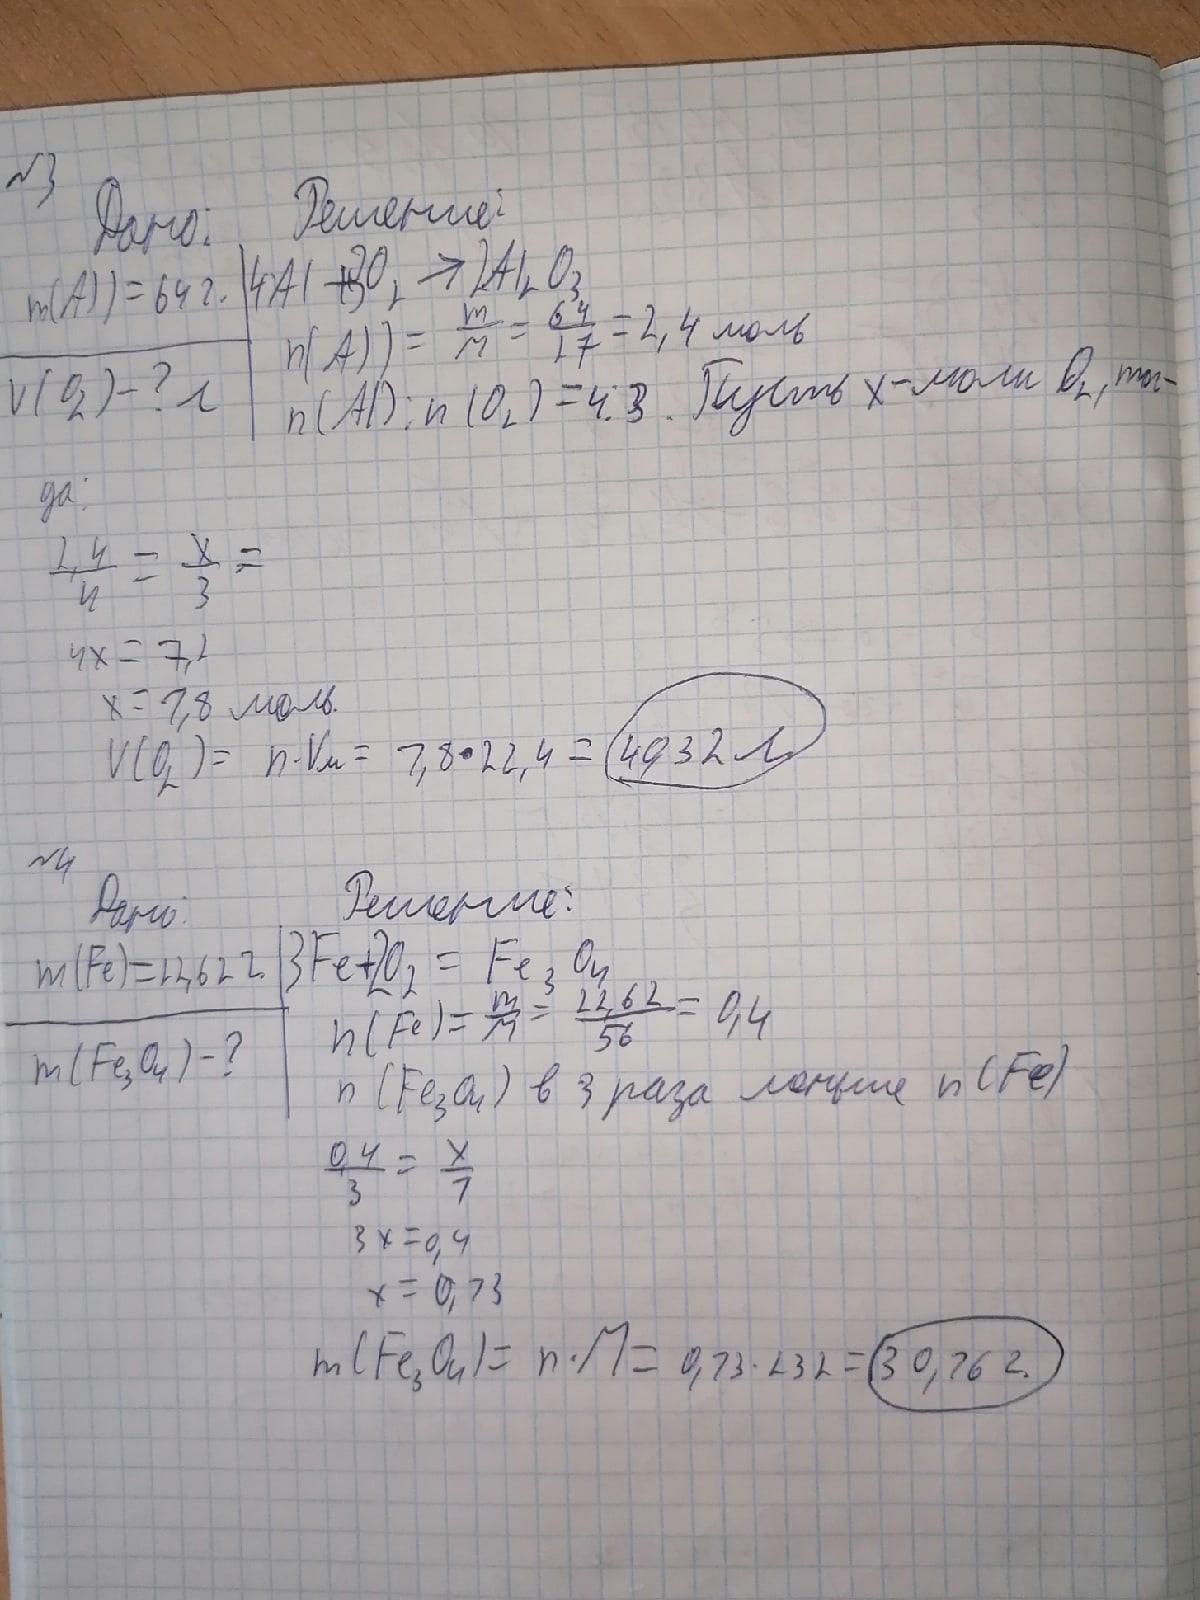 №3
Дано: Решение:
m(Al)=64г. 4Al+3O₂→2Al₂O₃
n(Al)=m/M=64/27=2,4 моль
V(O₂)-? л n(Al):n(O₂)=4:3. Пусть x-моли O₂, тог-
да:
2,4/4=x/3=
4x=7,2
x=1,8 моль.
V(O₂)= n·Vм= 1,8·22,4=40,32 л
№4
Дано: Решение:
m(Fe)=22,62г. 3Fe+2O₂=Fe₃O₄
n(Fe)=m/M=22,62/56=0,4
m(Fe₃O₄)-? n(Fe₃O₄) в 3 раза меньше n(Fe)
0,4/3=x/1
3x=0,4
x=0,13
m(Fe₃O₄)=n·M=0,13·232=30,16г.